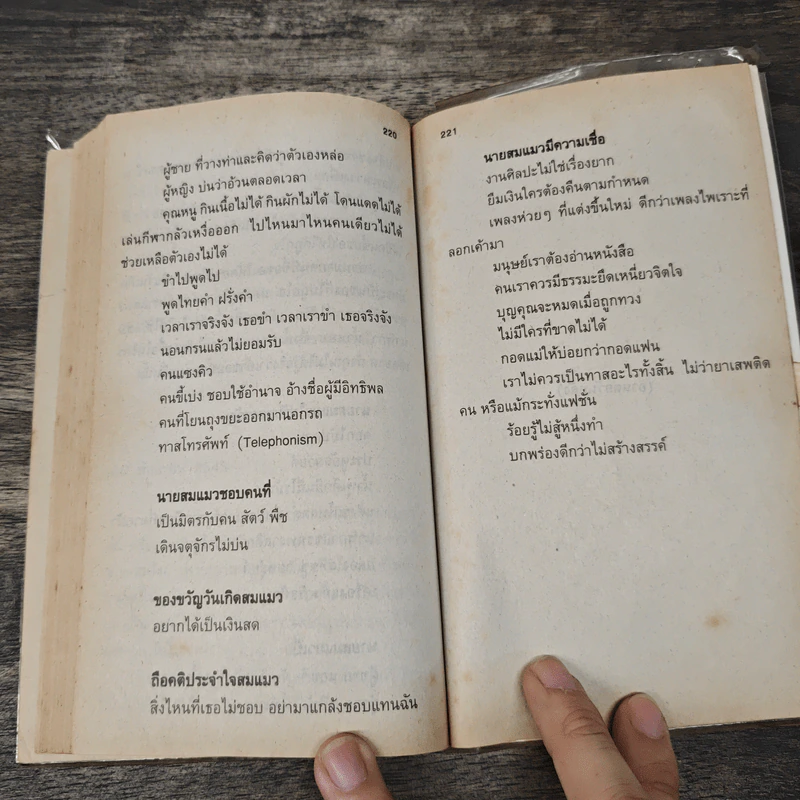 220
ผู้ชาย ที่วางท่าและคิดว่าตัวเองหล่อ
ผู้หญิง บ่นว่าอ้วนตลอดเวลา
คุณหนู กินเนื้อไม่ได้ กินผักไม่ได้ โดนแดดไม่ได้
เล่นกีฬากลัวเหงื่อออก ไปไหนมาไหนคนเดียวไม่ได้
ช่วยเหลือตัวเองไม่ได้
ขำไปพูดไป
พูดไทยคำ ฝรั่งคำ
เวลาเราจริงจัง เธอขำ เวลาเราขำ เธอจริงจัง
นอนกรนแล้วไม่ยอมรับ
คนแซงคิว
คนขี้เบ่ง ชอบใช้อำนาจ อ้างชื่อผู้มีอิทธิพล
คนที่โยนถุงขยะออกมานอกรถ
ทาสโทรศัพท์ (Telephonism)
นายสมแมวชอบคนที่
เป็นมิตรกับคน สัตว์ พืช
เดินจตุจักรไม่บ่น
ของขวัญวันเกิดสมแมว
อยากได้เป็นเงินสด
ถือคติประจำใจสมแมว
สิ่งไหนที่เธอไม่ชอบ อย่ามาแกล้งชอบแทนฉัน
221
นายสมแมวมีความเชื่อ
งานศิลปะไม่ใช่เรื่องยาก
ยืมเงินใครต้องคืนตามกำหนด
เพลงห่วยๆ ที่แต่งขึ้นใหม่ ดีกว่าเพลงไพเราะที่
ลอกเค้ามา
มนุษย์เราต้องอ่านหนังสือ
คนเราควรมีธรรมะยึดเหนี่ยวจิตใจ
บุญคุณจะหมดเมื่อถูกทวง
ไม่มีใครที่ขาดไม่ได้
กอดแม่ให้บ่อยกว่ากอดแฟน
เราไม่ควรเป็นทาสอะไรทั้งสิ้น ไม่ว่ายาเสพติด
คน หรือแม้กระทั่งแฟชั่น
ร้อยรู้ไม่สู้หนึ่งทำ
บกพร่องดีกว่าไม่สร้างสรรค์